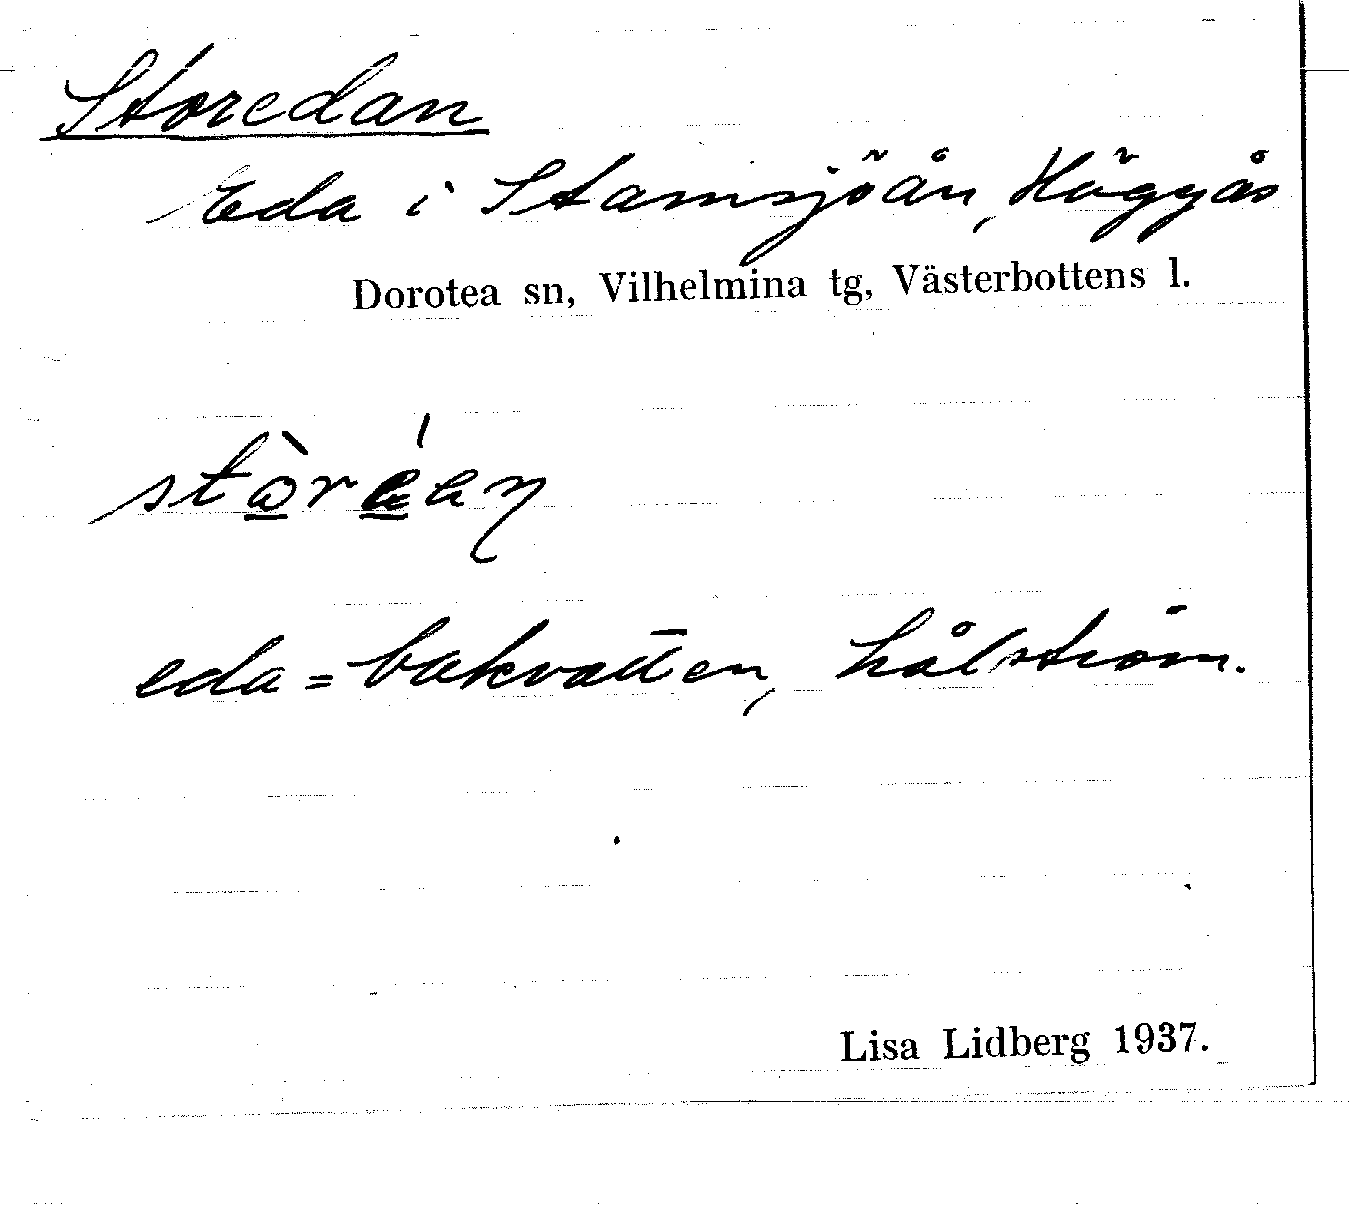 Storedan
Eda i Stamsjöån, Höggås
Dorotea sn, Vilhelmina tg, Västerbottens l.
eda = bakvatten, hålström.
Lisa Lidberg 1937.